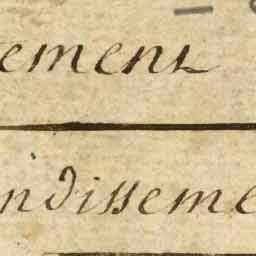 ement
ndisseme